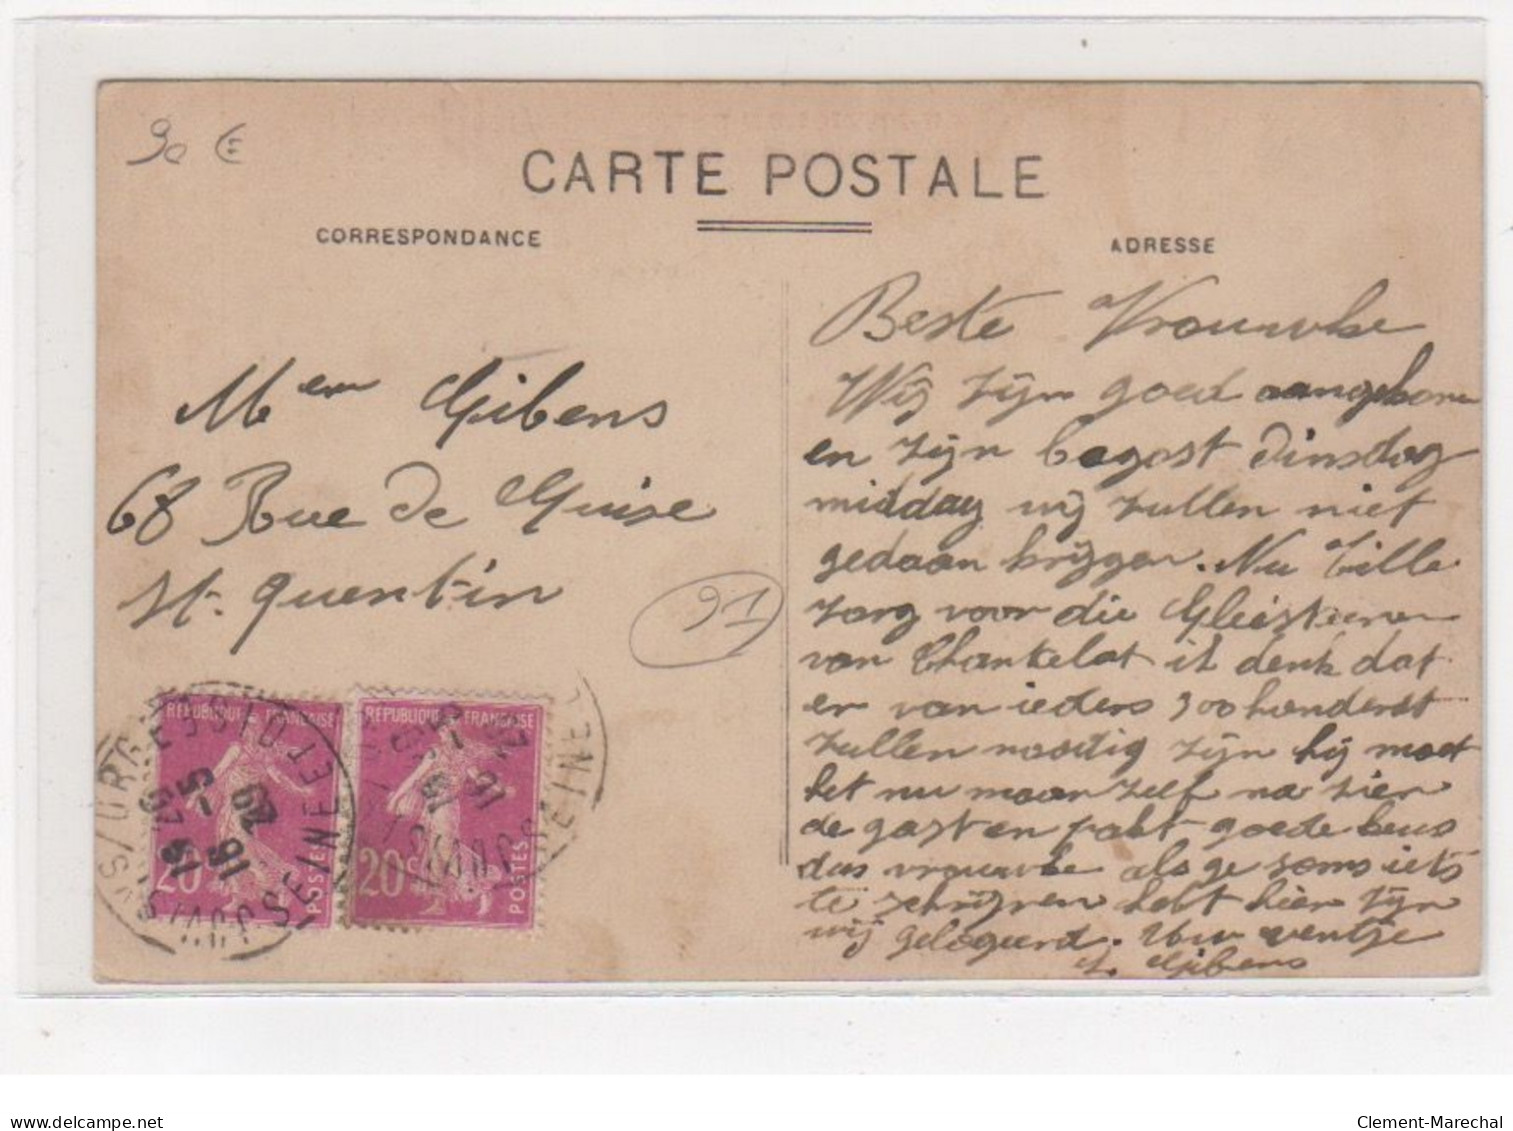 90 €
CARTE POSTALE
CORRESPONDANCE
ADRESSE
Mme Gibens
68 Rue de Guise
St. Quentin
91
Beste Vrouwke
Wij zijn goed aangekomen
en zijn begost dinsdag
middag wij zullen niet
gedaan krijgen. Nu
zorg voor die
van ik denk dat
er van ieders 300 honderst
zullen noodig zijn hij moet
het nu maar zelf na zien
de gasten goede
das vrouwke als ge soms iets
te schrijven hebt hier zijn
wij gelogeerd. Uw ventje
Gibens
REPUBLIQUE FRANÇAISE
20c
POSTES
REPUBLIQUE FRANÇAISE
20c
POSTES
SEINE ET OISE
JUVISY S/ ORGE
delcampe.net
Clement-Marechal